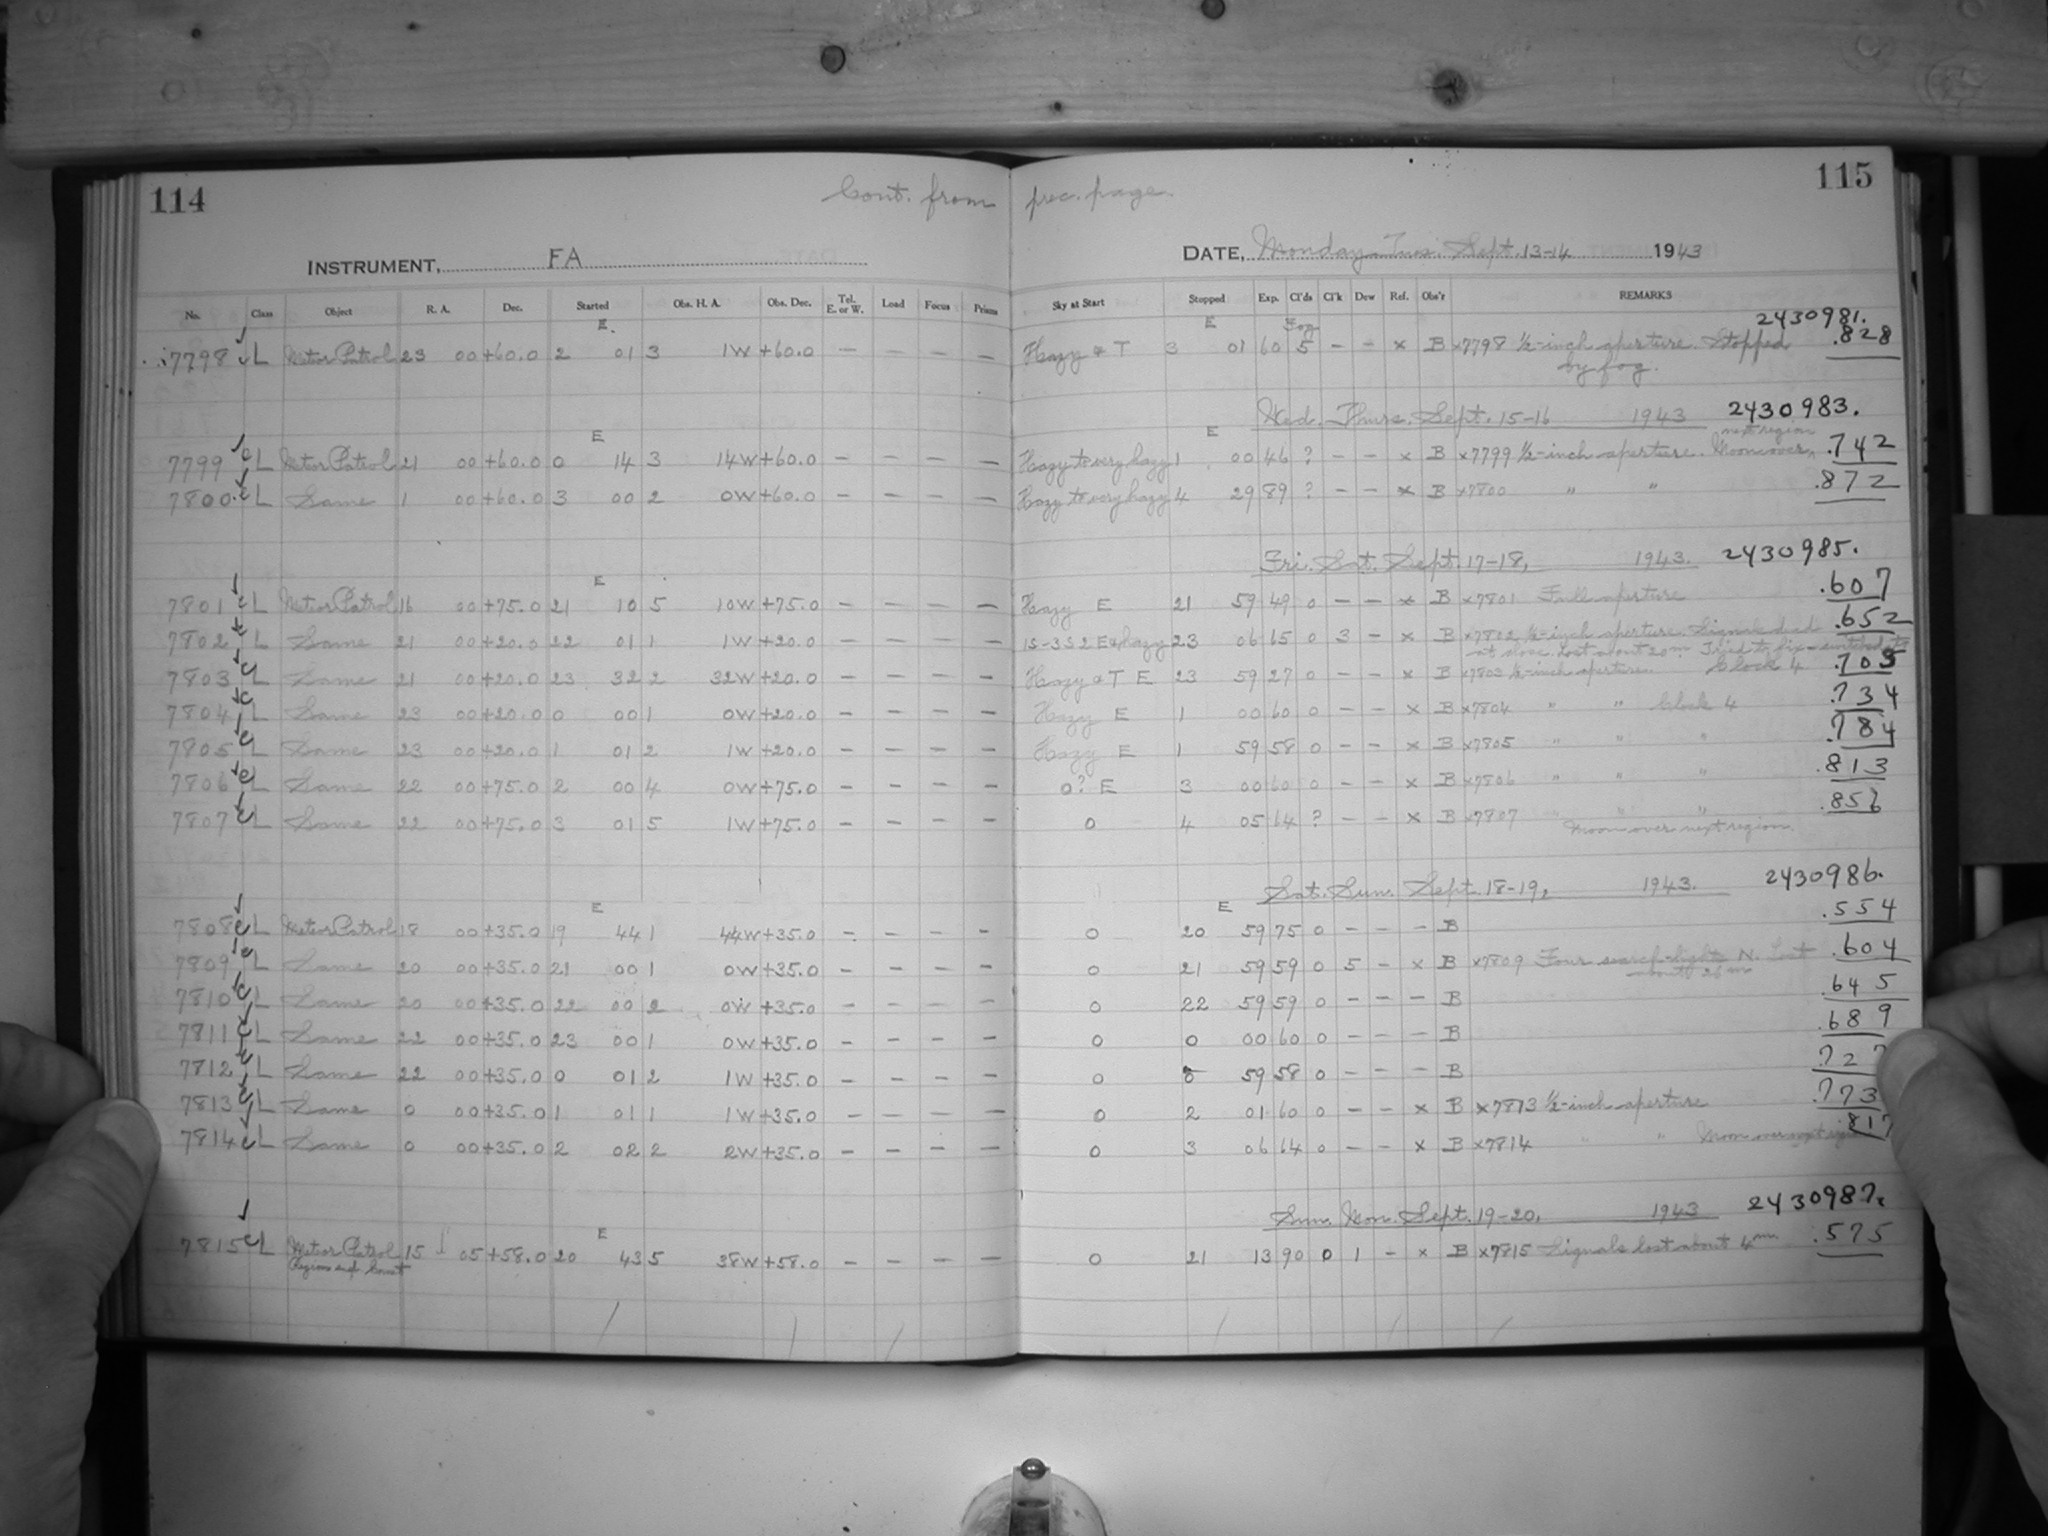 114
Cont. from prec. page.
115
INSTRUMENT, FA
DATE, Monday-Tues. Sept. 13-14 1943
No. Class Object R. A. Dec. Started Obs. H. A. Obs. Dec. Tel. E. or W. Load Focus Prisms Sky at Start Stopped Exp. Cl'ds Cl'k Dew Ref. Obs'r REMARKS
2430981.
E. E Fog
7798 L Meteor Patrol 23 00 +60.0 2 01 3 1W +60.0 — — — — Hazy & T 3 01 60 5 — — x B x7798 ½-inch aperture. Stopped .828
by fog.
Wed. Thurs. Sept. 15-16 1943 2430983.
E E next region
7799 L Meteor Patrol 21 00 +60.0 0 14 3 14W +60.0 — — — — Hazy to very hazy 1 00 46 ? — — x B x7799 ½-inch aperture. Moon over .742
7800 L Same 1 00 +60.0 3 00 2 0W +60.0 — — — — Hazy to very hazy 4 29 89 ? — — x B x7800 " " .872
Fri. Sat. Sept. 17-18, 1943. 2430985.
E
7801 L Meteor Patrol 16 00 +75.0 21 10 5 10W +75.0 — — — — Hazy E 21 59 49 0 — — x B x7801 Full aperture .607
7802 L Same 21 00 +20.0 22 01 1 1W +20.0 — — — — 23 06 65 0 3 — x B x7802 ½-inch aperture. Signals died .652
at close. Lost about 20m. Tried to fix
7803 L Same 21 00 +20.0 23 32 2 32W +20.0 — — — — Hazy & T E 23 59 27 0 — — x B x7803 ½-inch aperture. Clock 4 .705
7804 L Same 23 00 +20.0 0 00 1 0W +20.0 — — — — Hazy E 1 00 60 0 — — x B x7804 " " Clock 4 .734
7805 L Same 23 00 +20.0 1 01 2 1W +20.0 — — — — Hazy E 1 59 58 0 — — x B x7805 " " " .784
7806 L Same 22 00 +75.0 2 00 4 0W +75.0 — — — — 0? E 3 00 60 0 — — x B x7806 " " " .813
7807 L Same 22 00 +75.0 3 01 5 1W +75.0 — — — — 0 4 05 64 ? — — x B x7807 " " " .856
Moon over next region.
Sat. Sun. Sept. 18-19, 1943. 2430986.
E E
7808 L Meteor Patrol 18 00 +35.0 19 44 1 44W +35.0 — — — — 0 20 59 75 0 — — — B .554
7809 L Same 20 00 +35.0 21 00 1 0W +35.0 — — — — 0 21 59 59 0 5 — x B x7809 Four search-lights N. Lost .604
about 26m
7810 L Same 20 00 +35.0 22 00 2 0W +35.0 — — — — 0 22 59 59 0 — — — B .645
7811 L Same 22 00 +35.0 23 00 1 0W +35.0 — — — — 0 0 00 60 0 — — — B .689
7812 L Same 22 00 +35.0 0 01 2 1W +35.0 — — — — 0 59 58 0 — — — B
7813 L Same 0 00 +35.0 1 01 1 1W +35.0 — — — — 0 2 01 60 0 — — x B x7813 ½-inch aperture .773
7814 L Same 0 00 +35.0 2 02 2 2W +35.0 — — — — 0 3 06 64 0 — — x B x7814 " " Moon over next .817
Sun. Mon. Sept. 19-20, 1943 2430987.
E
7815 L Meteor Patrol 15 05 +58.0 20 43 5 38W +58.0 — — — — 0 21 13 90 0 1 — x B x7815 Signals lost about 4m. .575
Region Comet